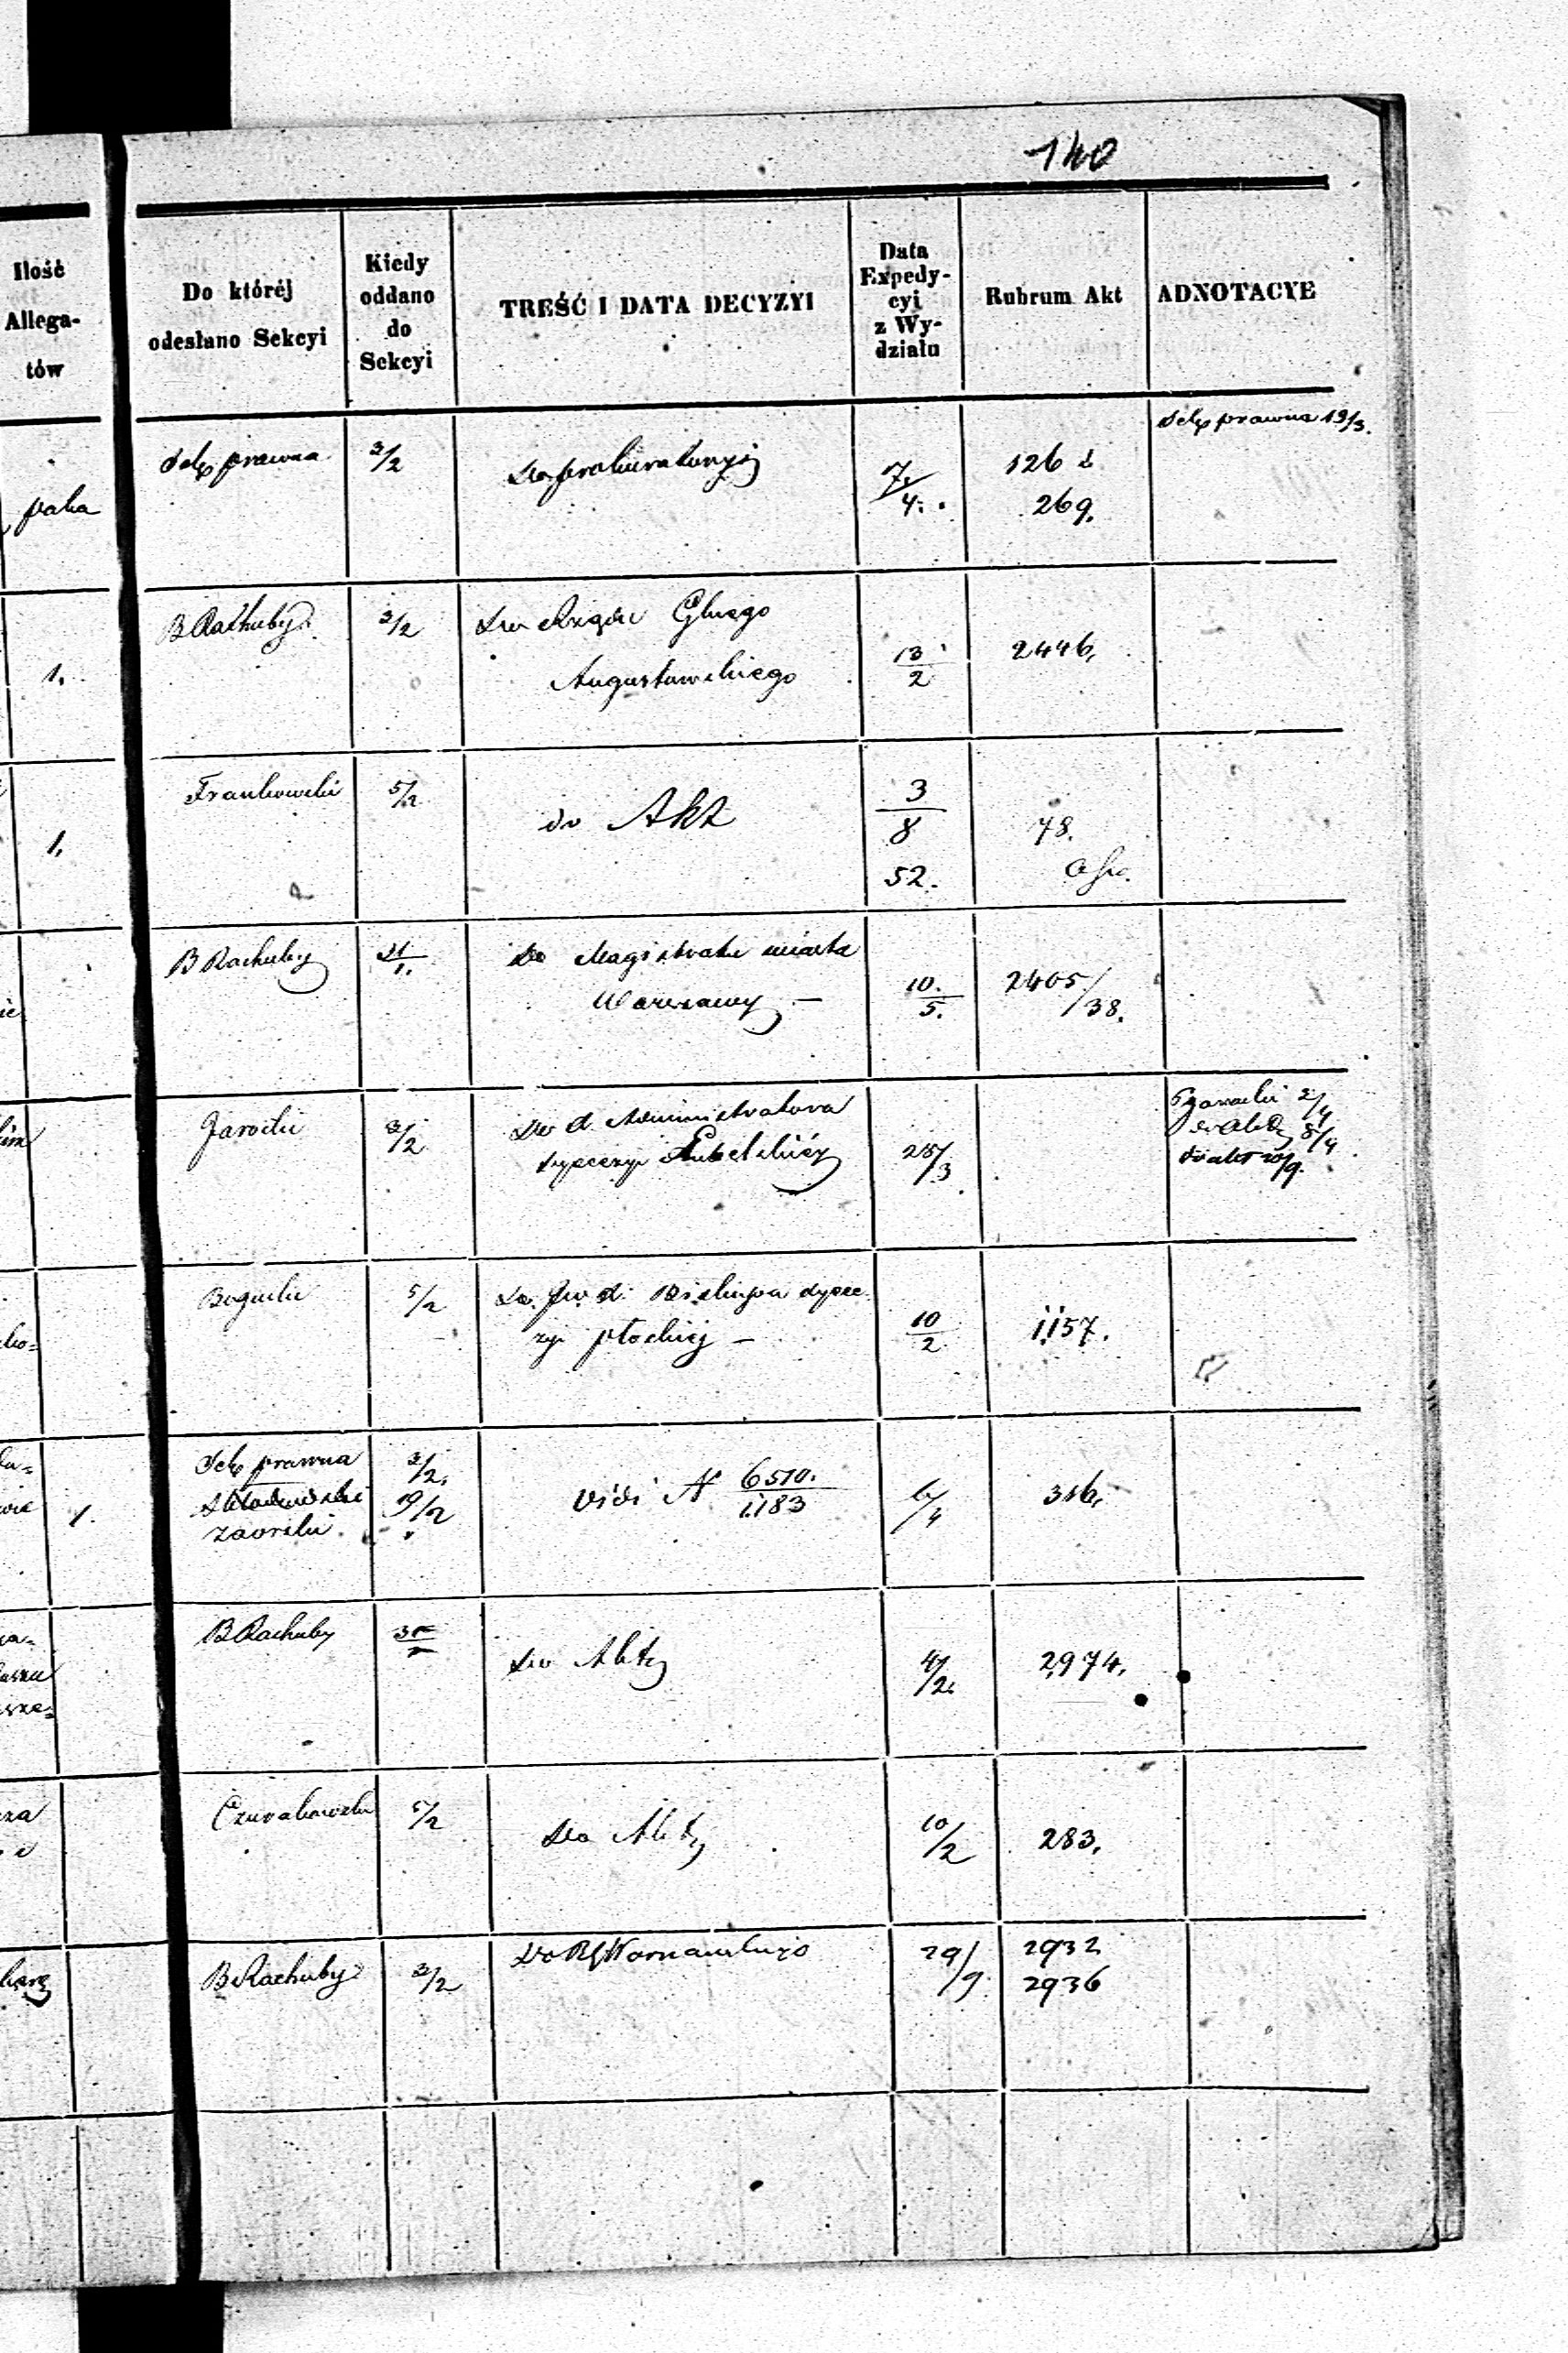 140
Ilość
Allega-
tów
Do któréj
odesłano Sekcyi
Kiedy
oddano
do
Sekcyi
TREŚĆ I DATA DECYZYI
Data
Expedy-
cyi
z Wy-
działu
Rubrum Akt
ADNOTACYE
paka
Sek prawna
3/2
Do prokuratoryi
7/4.
126 i
269.
Sek prawna 19/3.
1.
B Rachuby
3/2
Do Rządu Gbnego
Augustowskiego
13/2
2446,
1.
Frankowski
5/2
do Akt
3/8
52.
78.
B Rachuby
31/1.
Do Magistratu miasta
Warszawy —
10./5.
2405/38.
Jarocki
3/2
Do A. Administratora
dyecezyi Lubelskiéj
28/3
2/4
8/4
do akt 20/9.
Bogucki
5/2
Do Jw. X. Biskupa dyece
zyi płockiéj —
10/2
1157.
1.
Sek prawna
3/2.
19/2
vidi N 6510./1183
6/4
316,
B Rachuby
31/1
Do Akty
4/2.
2974.
5/2
Do Akty
10/2
283.
B Rachuby
3/2
Do RG Warszawskiego
29/9
2932
2936